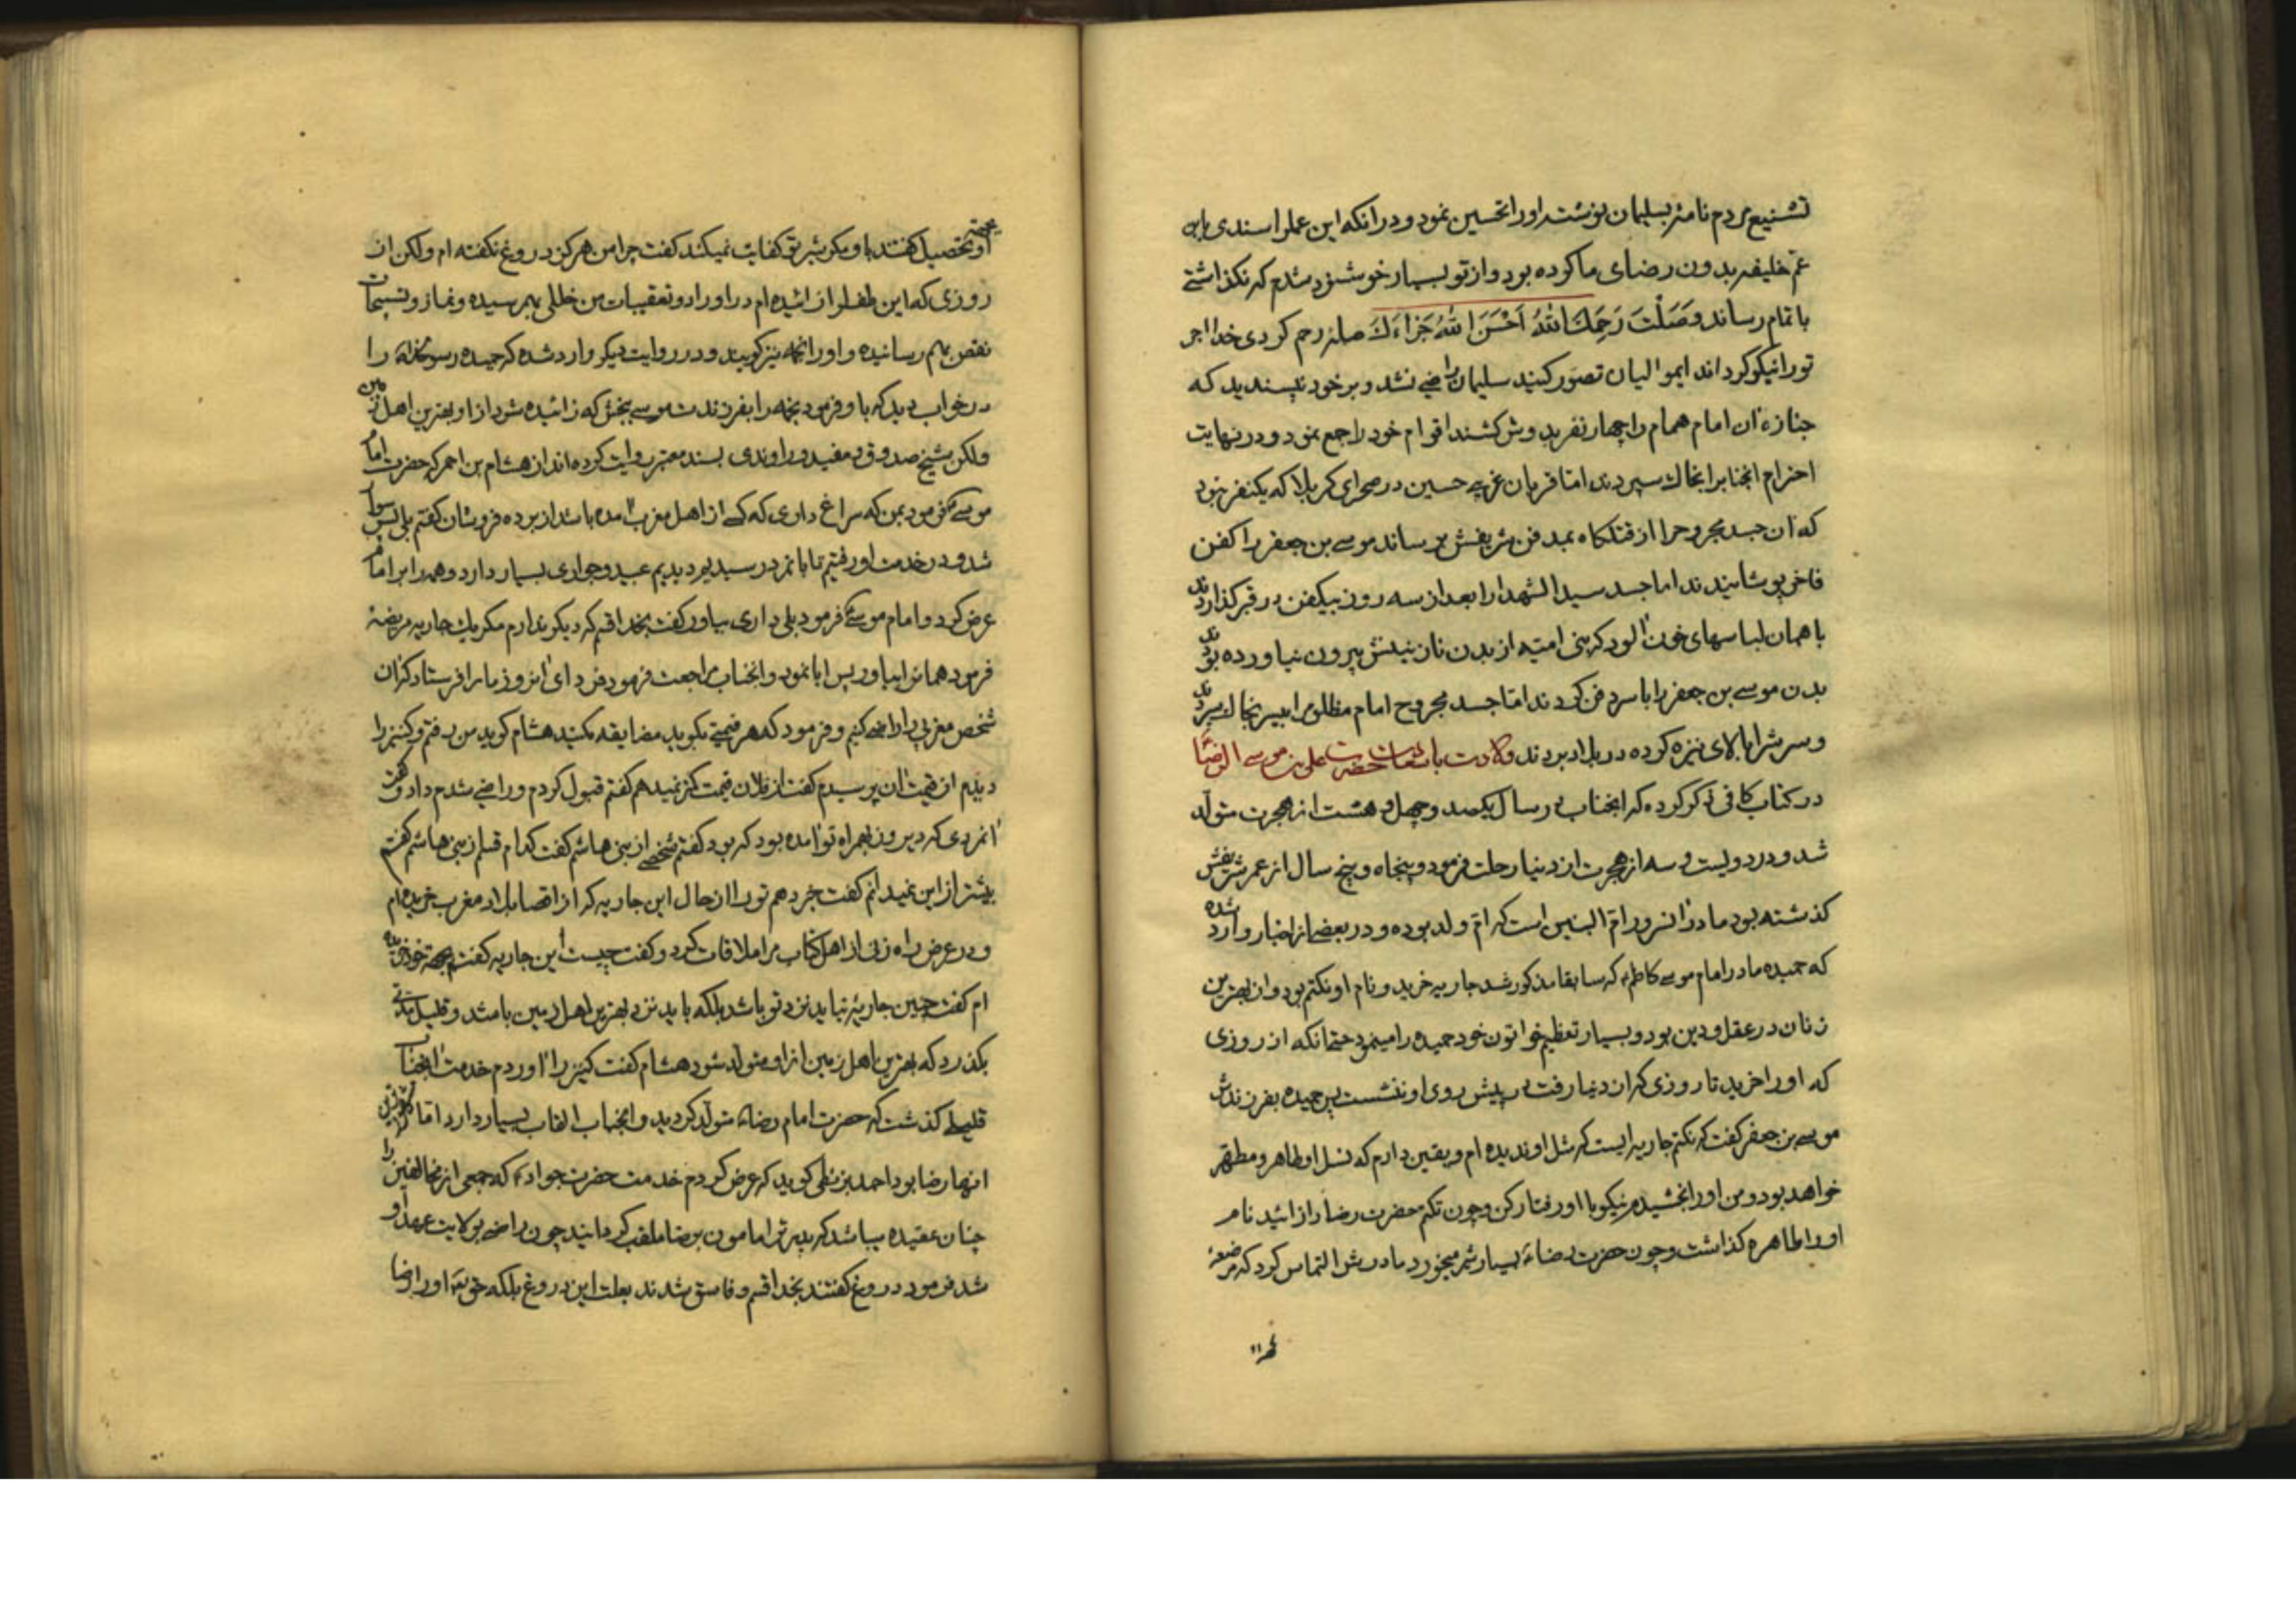 تشنیع مردم نامۀ بسلیمان نوشته اورا تحسین نمود و درانکه این عملرا سندی بابن
عم خلیفه بدون رضای ما کرده بود و از تو بسیار خوشنود شدم که نکذاشتی
باتمام رساند وَصَلْتَ رَحِمَكَ اللهُ اَحْسَنَ اللهُ جَزاءَكَ صله رحم کردی خدا اجر
تورا نیکو کرداند ایموالیان تصور کنید سلیمان راضی نشد و بر خود نپسندید که
جنازه ان امام همام را چهار نفر بدوش کشند اقوام خود را جمع نمود و در نهایت
احترام انجنابرا بخاك سپردند اما قربان غریبی حسین در صحرای کربلا که یکنفر نبود
که ان جسد مجروح را از قتلکاه بمدفن شریفش برساند موسی بن جعفر را کفن
فاخر پوشانیدند اما جسد سید الشهدا را بعد از سه روز بیکفن در قبر کذاردند
با همان لباسهای خون الود که بنی امیه از بدن نازنینش بیرون نیاورده بودند
بدن موسی بن جعفر را با سر دفن کردند اما جسد مجروح امام مظلوم را بیسر بخاك سپردند
و سرش را بالای نیزه کرده در بلاد بردند ولادت با سعادت حضرت علی بن موسی الرضا
در کتاب کافی ذکر کرده که انجناب در سال یکصد و چهل و هشت از هجرت متولد
شد و در دویست و سه از هجرت از دنیا رحلت فرمود و پنجاه و پنج سال از عمر شریفش
کذشته بود مادر انسرور ام البنین است که ام ولد بوده و در بعضی از اخبار وارد شده
که حمیده مادر امام موسی کاظم که سابقا مذکور شد جاریه خرید و نام او نکتم بود و ان بهترین
زنان در عقل و دین بود و بسیار تعظیم خواتون خود حمیده را مینمود حتی انکه از روزی
که اورا خرید تا روزی که از دنیا رفت در پیش روی او ننشست پس حمیده بفرزندش
موسی بن جعفر کفت که نکتم جاریه ایست که مثل او ندیده ام و یقین دارم که نسل او طاهر و مطهر
خواهد بود و من اورا بخشیدم نیکو با او رفتار کن و چون نکتم حضرت رضا را زائید نام
اورا طاهره کذاشت و چون حضرت رضاء بسیار شیر میخورد مادرش التماس کرد که مرضعۀ
بجهته او تحصیل کنند باو مکر شیر تو کفایت نمیکند کفت چرا من هرکز دروغ نکفته ام ولکن از
روزی که این طفلرا زائیده ام در اوراد و تعقیبات من خللی بهم رسیده و نماز و تسبیحات
نقص بهم رسانیده و اورا نجمه نیز کویند و در روایت دیکر وارد شده که حمیده رسولخدا را
در خواب دید که باو فرمود نجمه را بفرزندت موسی ببخش که زائیده شود از او بهترین اهل زمین
ولکن شیخ صدوق و مفید و راوندی بسند معتبر روایت کرده اند از هشام بن احمر که حضرت امام
موسی فرمود بمن که سراغ داری که کسی از اهل مغرب امده باشد از برده فروشان کفتم بلی پس سوار
شد و در خدمت او رفتیم تا بانمرد رسیدیم دیدیم عبید و جواری بسیار دارد و همه را بر امام
عرض کرد و امام موسی فرمود بلی داری بیاور کفت بخدا قسم که دیکر ندارم مکر یك جاریه مریضۀ
فرمود همانرا بیاور پس ابا نمود و انجناب مراجعت فرمود فردای انروز مارا فرستاد که ان
شخص مغربی را راضی کنم و فرمود که هر قیمتی بکوید مضایقه مکنید هشام کوید من رفتم و کنیز را
دیدم از قیمت ان پرسیدم کفت از فلان قیمت کمتر نمیدهم کفتم قبول کردم و راضی شدم داد و کفت
انمردی که دیروز بهمراه تو امده بود که بود کفتم شخصی از بنی هاشم کفت کدام قسم از بنی هاشم کفتم
بیشتر از این نمیدانم کفت خبر دهم تورا از حال این جاریه که از اقصا بلاد مغرب خریده ام
و در عرض راه زنی از اهل کتاب مرا ملاقات کرد و کفت چیست این جاریه کفتم بجهته خود خریده
ام کفت چنین جاریۀ نباید نزد تو باشد بلکه باید نزد بهترین اهل زمین باشد و قلیل مدتی
بکذرد که بهترین اهل زمین از او متولد شود هشام کفت کنیز را اوردم خدمت انجناب
قلیلی کذشت که حضرت امام رضاء متولد کردید و انجناب القاب بسیار دارد اما
انها رضا بود احمد بزنطی کوید که عرض کردم خدمت حضرت جواد که جمعی از مخالفین را
چنان عقیده میباشد که پدرش را مامون برضا ملقب کردانید چون راضی بولایت عهد او
شد فرمود دروغ کفتند بخدا قسم و فاسق شدند بعلت این دروغ بلکه حق تعالی اورا رضا